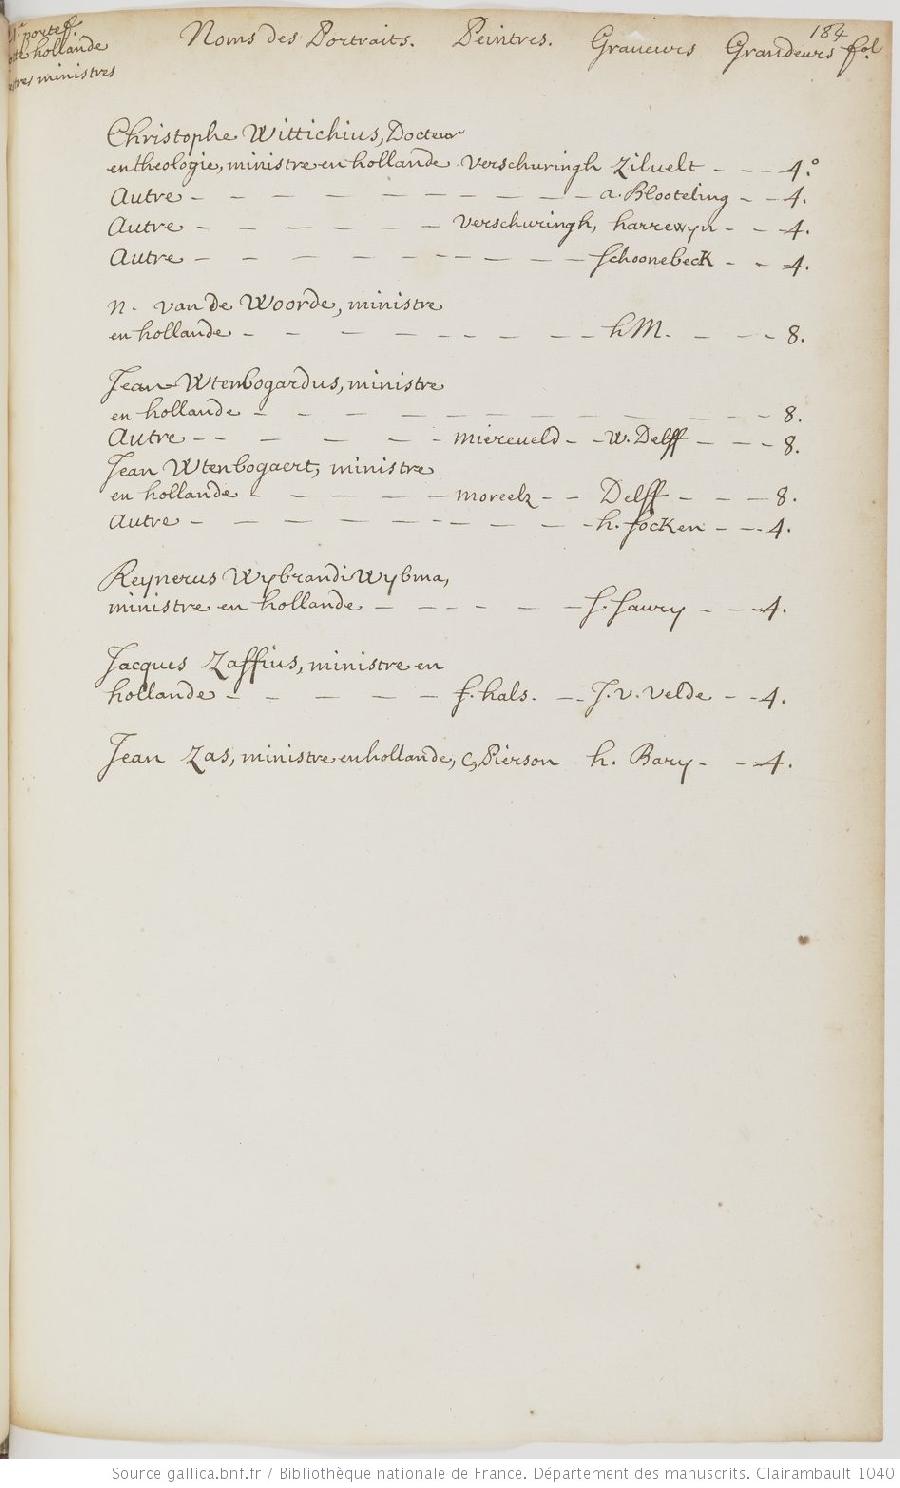 184
portef.
hollande
ministres
Noms des Portraits. Peintres. Graueurs Grandeurs fol
Christophe Wittichius, Docteur
en theologie, ministre en hollande verschuringh Ziluelt - - - 4.°
Autre - - - - - - - - - a. Blooteling - - 4.
Autre - - - - - - verschuringh, harrewyn - - 4.
Autre - - - - - - - - - Schoonebeck - - 4.
n. van de Woorde, ministre
en hollande - - - - - - - - hM. - - - 8.
Jean Wtenbogardus, ministre
en hollande - - - - - - - - - - - - 8.
Autre - - - - - - miereueld - - W. Delff - - - 8.
Jean Wtenbogaert, ministre
en hollande - - - - - moreelz - - Delff - - - 8.
Autre - - - - - - - - - h. focken - - - 4.
Reynerus Wybrandi Wybma,
ministre en hollande - - - - - - S. Saury - - - 4.
Jacques Zaffius, ministre en
hollande - - - - - f. hals. - - J. v. velde - - 4.
Jean Zas, ministre en hollande, C, Pierson h. Bary - - 4.
Source gallica.bnf.fr / Bibliothèque nationale de France. Département des manuscrits. Clairambault 1040